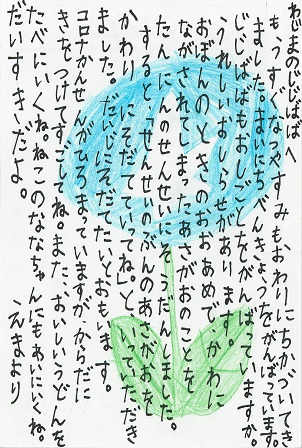 おじまのじじばばへ
もうすぐなつやすみもおわりにちかづいてき
ました。まいにちべんきょうをがんばっています。
じじばばもおしごとをがんばっていますか。
うれしいおしらせがあります。
おぼんのときのおおあめで、かわに
ながされてしまったあさがおのことを
たんにんのせんせいにそうだんしました。
すると「せんせいのぶんのあさがおを
かわりにそだてていってね。」といただき
ました。だいじにそだてたいとおもいます。
コロナかんせんがひろまっていますが、からだに
きをつけてすごしてね。また、おいしいうどんを
たべにいくね。ねこのななちゃんにもあいにいくね。
だいすきだよ。
えまより